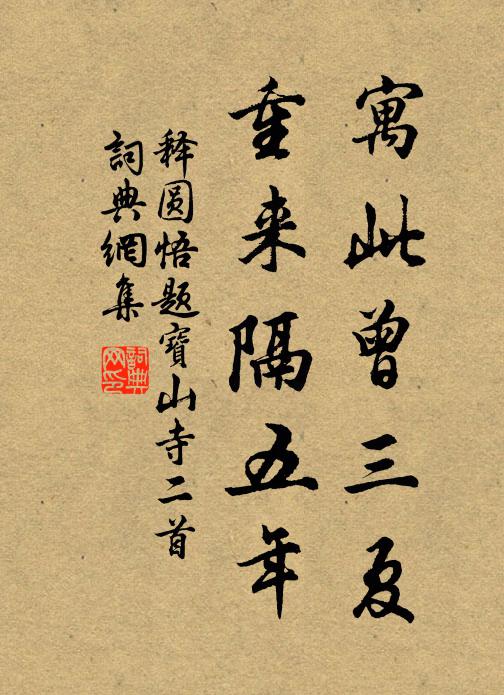 寓此曾三夏
重来隔五年
释圆悟题寶山寺二首
詞典網集
詞典网印